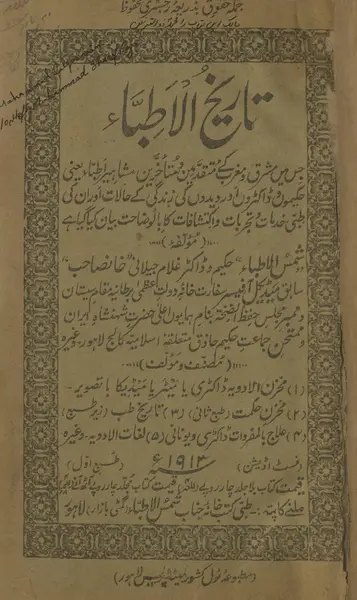 جملہ حقوق بذریعہ رجسٹری محفوظ
تاریخ الاطبّاء
جس میں مشرق و مغرب کے متقدمین و متأخرین مشاہیر اطباء یعنی
حکیموں و ڈاکٹروں اور ویدوں کی زندگی کے حالات اور ان کی
طبی خدمات و تجربات و اکتشافات کا بالوضاحت بیان کیا گیا ہے
(مؤلفہ)
شمس الاطباء حکیم و ڈاکٹر غلام جیلانی خانصاحب
سابق میڈیکل آفیسر سفارت خانہ دولت عظمیٰ برطانیہ
و ممبر مجلس حفظ الصحۃ بنام ہمایوں اعلیٰ حضرت شہنشاہ ایران
و ممتحن جماعت حکیم حاذق متعلقہ اسلامیہ کالج لاہور وغیرہ
(مصنف و مؤلف)
(۱) مخزن الادویہ ڈاکٹری یا میٹیریا میڈیکا با تصویر۔
(۲) مخزن حکمت (طبع ثانی) (۳) تاریخ طب (زیر طبع)
(۴) علاج بالمفردات ڈاکٹری و یونانی (۵) لغات الادویہ۔ وغیرہ
(فسٹ اڈیشن) ۱۹۱۳ء (طبع اول)
قیمت کتاب بلا جلد چار روپے قیمت کتاب مجلد چار روپے
ملنے کا پتہ:۔ طبی کتب خانہ جناب شمس الاطباء گمٹی بازار لاہور
(مطبوعہ نول کشور سٹیم پریس لاہور)